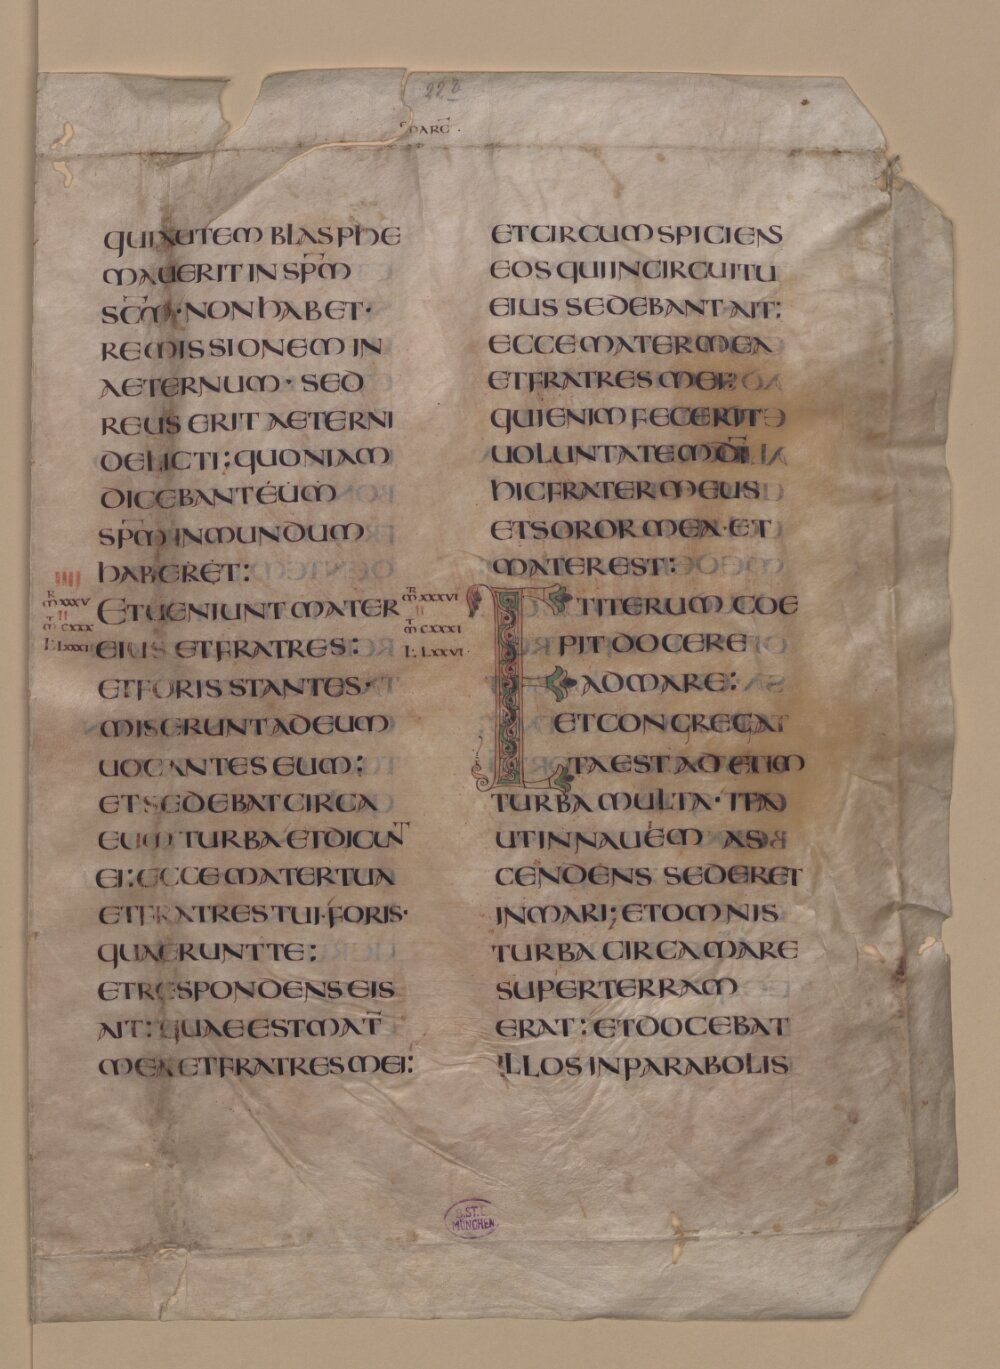 22b
MARC̄
QUI AUTEM BLASPHE
MAUERIT IN SPM̄
SCM̄·NON HABET·
REMISSIONEM IN
AETERNUM· SED
REUS ERIT AETERNI
DELICTI; QUONIAM
DICEBANT ÉUM̀
SPM̄ INMUNDUM
HABERÉT:
IIII
M̄XXXV
II
M̄ CXXX
L̄ LXXXI
ET UENIUNT MATER
EIUS ET FRATRES:
ET FORIS STANTES·
MISERUNT AD EUM
UOCANTES EUM:
ET SEDEBAT CIRCA
EUM TURBA·ET DICUNT
EI: ECCE MATER TUA
ET FRATRES TUI·FORIS·
QUAERUNT TE:
ET RESPONDENS EIS
AIT: QUAE EST MAT̄
MEA ET FRATRES MEI:
ET CIRCUMSPICIENS
EOS QUI IN CIRCUITU
EIUS SEDEBANT AIT:
ECCE MATER MEA
ET FRATRES MEI:
QUI ENIM FECERIT
UOLUNTATEM DĪ
HIC FRATER MEUS
ET SOROR MEA·ET
MATER EST:
M̄XXXVI
II
M̄ CXXXI
L· LXXVI·
ET ITERUM COE
PIT DOCERE
AD MARE:
ET CONGREGA
TA EST AD EUM
TURBA MULTA· ITA
UT IN NAUÉM AS
CENDENS SEDERET
IN MARI; ET OMNIS
TURBA CIRCA MARE
SUPER TERRAM
ERAT: ET DOCEBAT
ILLOS IN PARABOLIS
B.ST.B.
MÜNCHEN